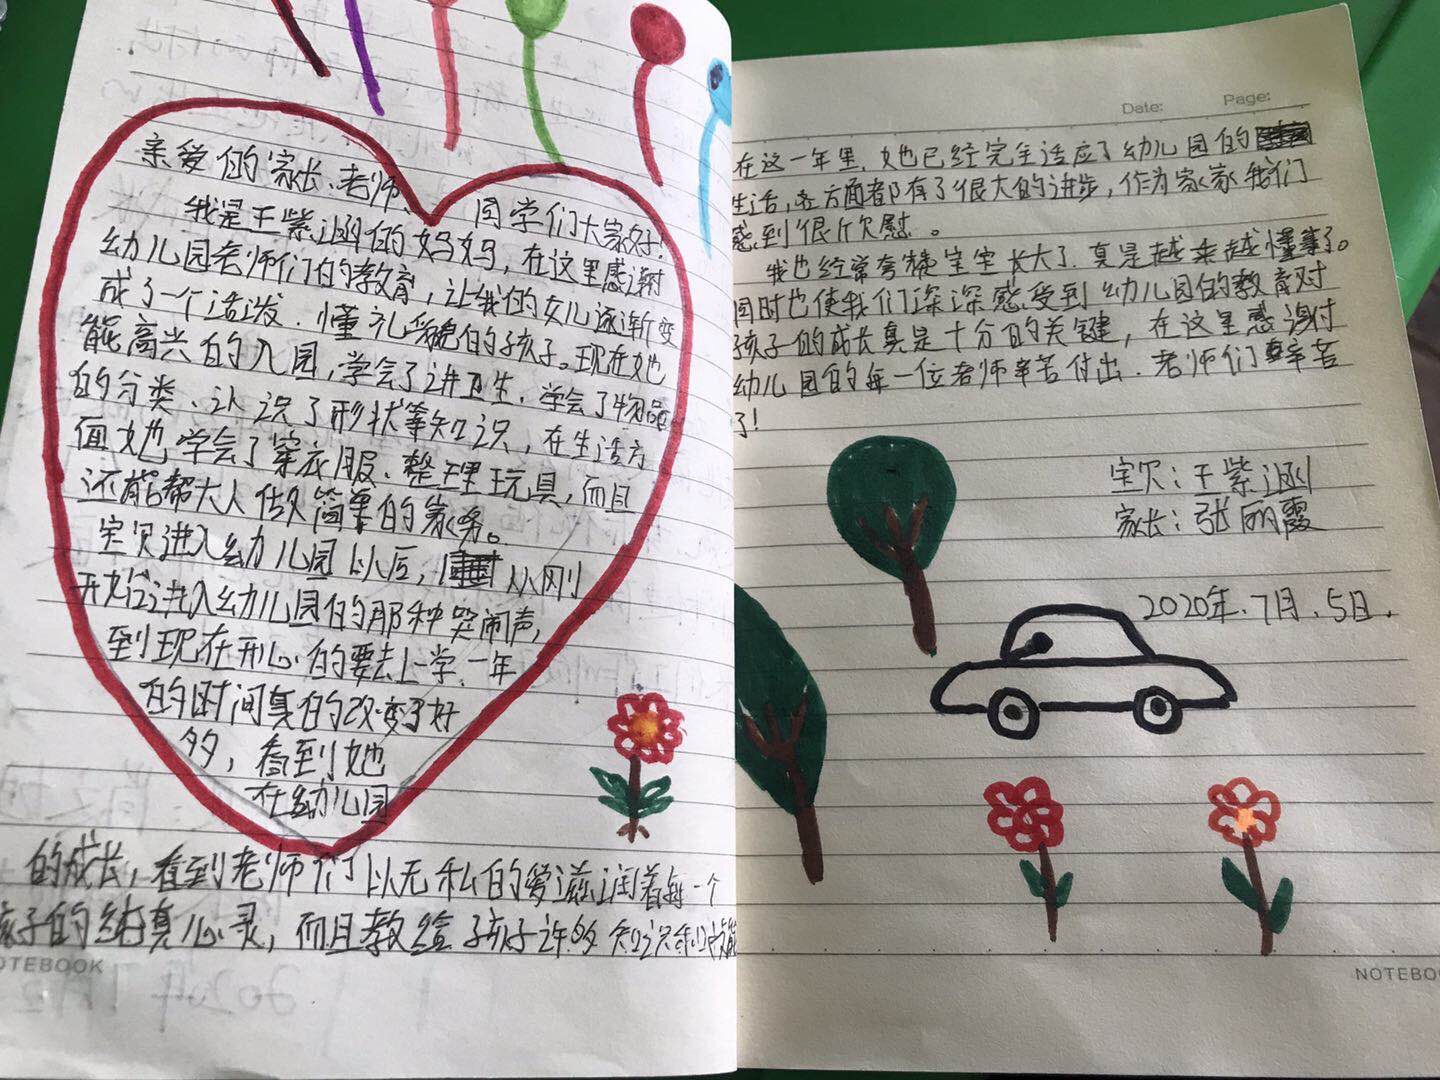 亲爱的家长、老师、同学们大家好!
我是王紫涵的妈妈,在这里感谢
幼儿园老师们的教育,让我的女儿逐渐变
成了一个活泼、懂礼貌的孩子。现在她
能高兴的入园,学会了讲卫生,学会了物品
的分类、认识了形状等知识,在生活方
面她学会了穿衣服、整理玩具,而且
还能帮大人做简单的家务。
宝贝进入幼儿园以后,从刚
开始进入幼儿园的那种哭闹声,
到现在开心的要去上学,一年
的时间真的改变了好
多,看到她
在幼儿园
的成长,看到老师们以无私的爱滋润着每一个
孩子的纯真心灵,而且教给孩子许多知识和技能
NOTEBOOK
Date: Page:
在这一年里,她已经完全适应了幼儿园的
生活,各方面都有了很大的进步,作为家长我们
感到很欣慰。
我也经常夸赞宝宝长大了,真是越来越懂事了。
同时也使我们深深感受到幼儿园的教育对
孩子的成长真是十分的关键,在这里感谢
幼儿园的每一位老师辛苦付出.老师们辛苦
了!
宝贝:王紫涵
家长:张丽霞
2020年.7月.5日.
NOTEBOO